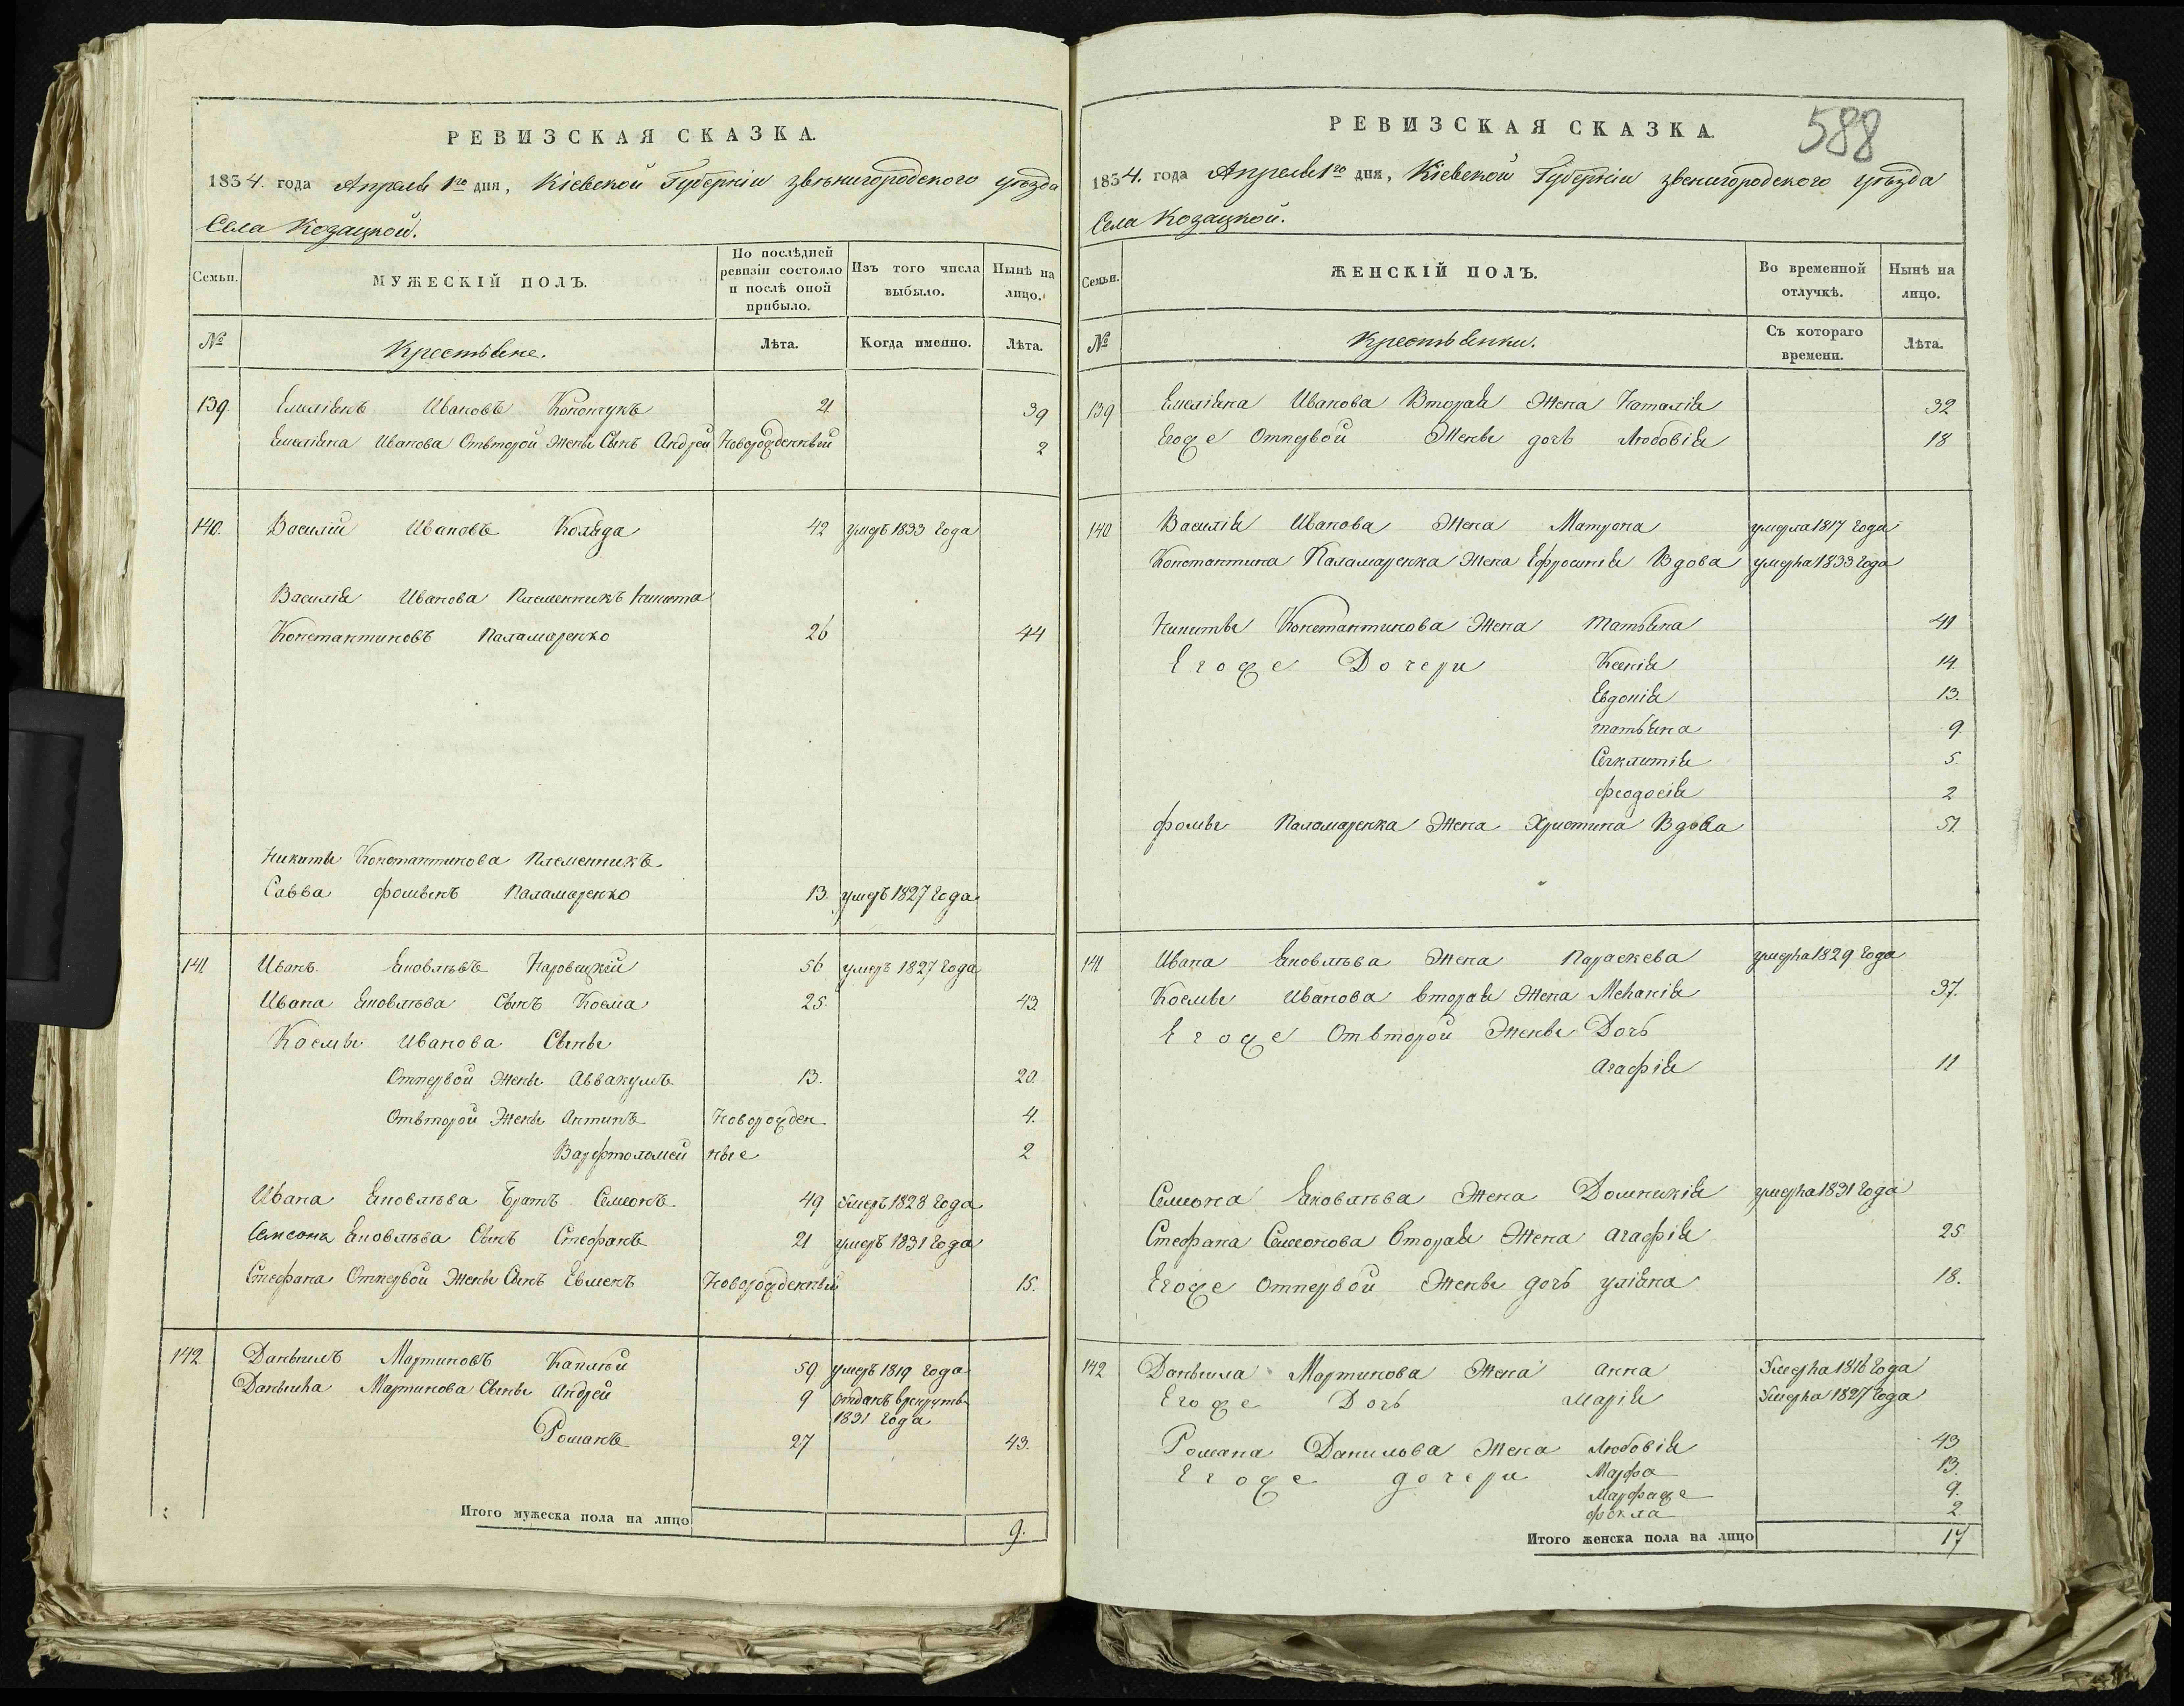 РЕВИЗСКАЯ СКАЗКА.
1834. года Апреля 1го дня, Кіевской Губерніи звѣнигородского уѣзда
Села Козацкой.
Семьи.
МУЖЕСКІЙ ПОЛЪ.
По послѣдней ревизіи состояло и послѣ оной прибыло.
Изъ того числа выбыло.
Нынѣ на лицо.
№
Крестьяне.
Лѣта.
Когда именно.
Лѣта.
139 Емеліянъ Ивановъ Конончукъ 21 39
Емеліяна Иванова Отвторой Жены Сынъ Андрей Новорожденный 2
140. Василій Ивановъ Коляда 42 умеръ 1833 года
Василія Иванова Племенникъ Никита
Константиновъ Паламаренко 26 44
Никиты Константинова Племенникъ
Савва Фоминъ Паламаренко 13. умеръ 1827 года
141 Иванъ Яковлѣвъ Наровецкій 56 умеръ 1827 года
Ивана Яковлѣва Сынъ Косма 25. 43
Космы Иванова Сыны
Отпервой Жены Аввакумъ 13. 20.
Отвторой Жены Антипъ Новорожден 4.
Варфтоломей ные 2
Ивана Яковлѣва Братъ Семіонъ 49 Умеръ 1828 года
Семиона Яковлѣва Сынъ Стефанъ 21 умеръ 1831 года
Стефана Отпервой Жены Сынъ Евменъ Новорожденный 15.
142 Даныилъ Мартиновъ Каплѣй 59 умеръ 1819 года
Даныила Мартинова Сыны Андрей 9 отданъ врекруты
1831 года
Романъ 27 43.
Итого мужеска пола на лицо 9.
588
РЕВИЗСКАЯ СКАЗКА.
1834. года Апреля 1го дня, Кіевской Губерніи звенигородского уѣзда
Села Козацкой.
Семьи.
ЖЕНСКІЙ ПОЛЪ.
Во временной отлучкѣ.
Нынѣ на лицо.
№
Крестьянки.
Съ котораго времени.
Лѣта.
139 Емеліяна Иванова Вторая Жена Наталія 32
Егоже Отпервой Жены дочь Любовія 18
140 Василія Иванова Жена Матрона умерла 1817 года
Константина Паламаренка Жена Ефросинія Вдова умерла 1833 года
Никиты Константинова Жена татьяна 41
Егоже Дочери Ксенія 14.
Евдокія 13.
татьяна 9.
Секлитія 5.
феодосія 2
фомы Паламаренка Жена Христина Вдова 51.
141 Ивана Яковлѣва Жена Параскева умерла 1829 года
Космы Иванова вторая Жена Меланія 37.
Егоже Отвторой Жены Дочь
Агафія 11
Семиона Яковлѣва Жена Домникія умерла 1831 года
Стефана Семионова Вторая Жена агафія 25.
Егоже отпервой Жены дочь уліяна 18.
142 Даныила Мартинова Жена анна Умерла 1816 года
Егоже Дочь Марія Умерла 1827 года
Романа Данильва Жена Любовія 43
Егоже дочери Марфа 13.
Марфаже 9.
фекла 2
Итого женска пола на лицо 17